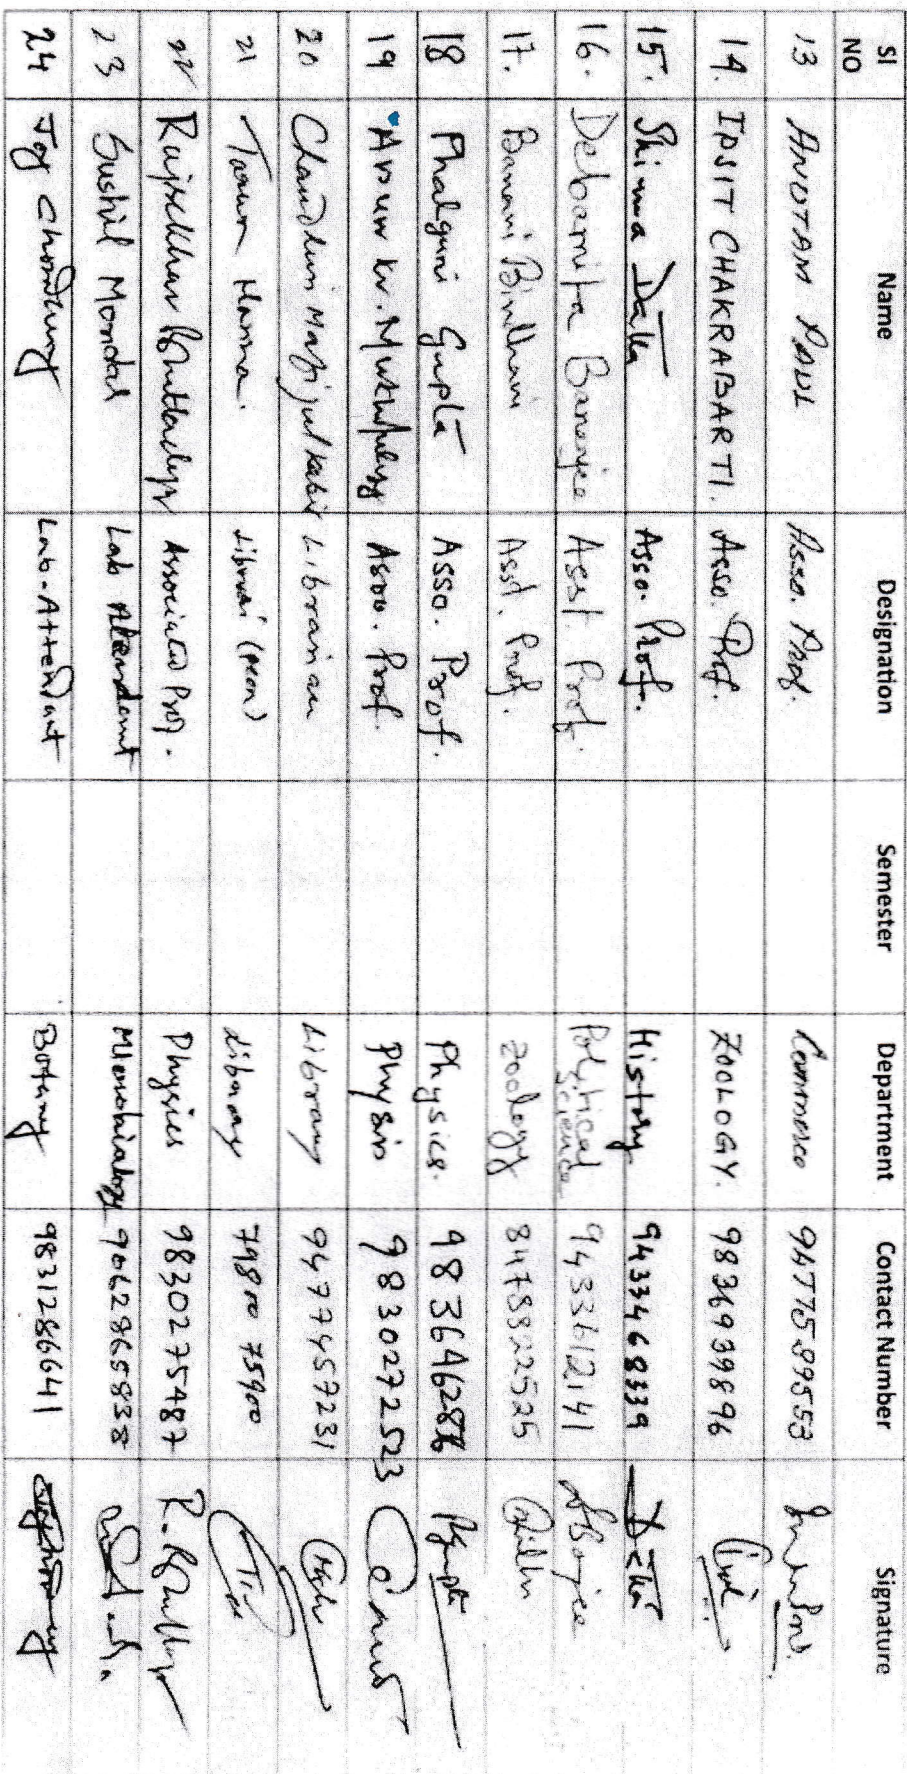 Sl NO Name Designation Semester Department Contact Number Signature
13 ANUTAM PAUL Asso. Prof. Commerce 9477589553
14. IPSIT CHAKRABARTI. Asso. Prof. ZOOLOGY. 9836939896
15. Shimma Datta Asso. Prof. History 9433468339 Datta
16. Debamita Banerjee Asst. Prof. Political Science 9433612141
17. Banani Binlhani Asst. Prof. Zoology 8478822525
18 Phalguni Gupta Asso. Prof. Physics. PGupta
19 Arun Kr. Asso. Prof. 9830272523
20 Chaudhuri Mafijulkabir Librarian Library 9477457231
21 Manna. (peon) Library 79800 75900
22 Rajsekhar Bhattacharya Associate Prof. Physics 9830275487
23 Sushil Mondal Lab Attendant Microbiology 9062865838
24 Joy Chowdhury Lab-Attendant Botany 9831286641